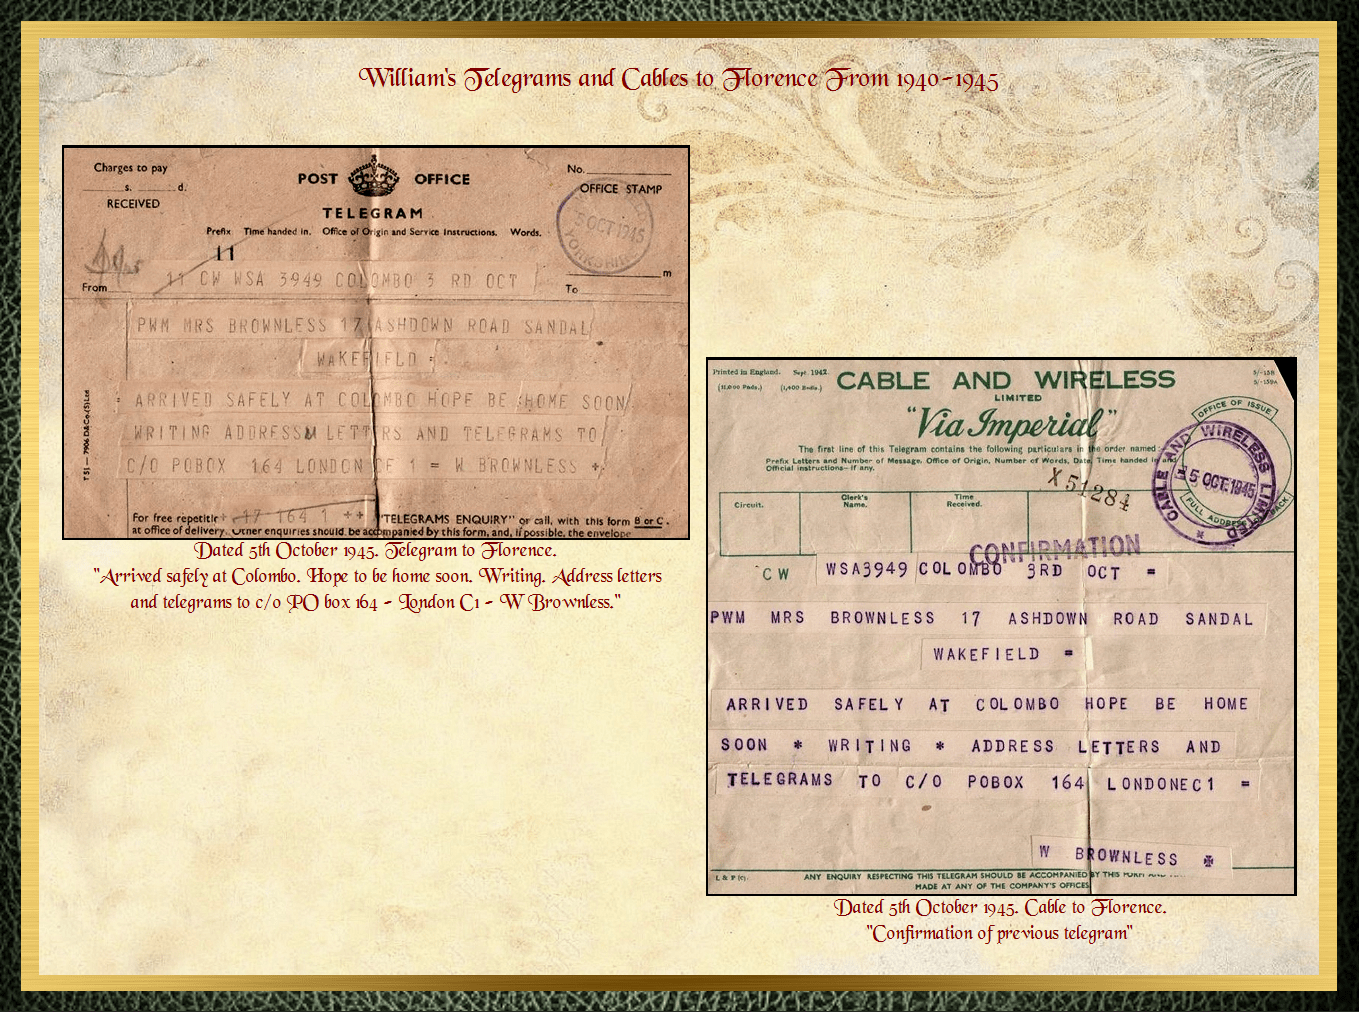 William's Telegrams and Cables to Florence From 1940-1945
Charges to pay
s. d.
RECEIVED
POST OFFICE
TELEGRAM
No.
OFFICE STAMP
5 OCT 1945
YORKSHIRE
Prefix Time handed in. Office of Origin and Service Instructions. Words.
11
m
From
To
11 CW WSA 3949 COLOMBO 3 RD OCT
PWM MRS BROWNLESS 17 ASHDOWN ROAD SANDAL
WAKEFIELD =
ARRIVED SAFELY AT COLOMBO HOPE BE HOME SOON
WRITING ADDRESS LETTERS AND TELEGRAMS TO
C/O POBOX 164 LONDON 1 = W BROWNLESS +
+ 17 164 1 ++
For free repetition "TELEGRAMS ENQUIRY" or call, with this form B or C.
at office of delivery. Other enquiries should be accompanied by this form, and, if possible, the envelope
Dated 5th October 1945. Telegram to Florence.
"Arrived safely at Colombo. Hope to be home soon. Writing. Address letters
and telegrams to c/o PO box 164 - London C1 - W Brownless."
Printed in England. Sept. 1942.
(11,000 Pads.)
5/-15B
5/-159A
CABLE AND WIRELESS
LIMITED
"Via Imperial"
The first line of this Telegram contains the following particulars in the order named:
Prefix Letters and Number of Message, Office of Origin, Number of Words, Date, Time handed in and
Official instructions—if any.
OFFICE OF ISSUE
CABLE AND WIRELESS LIMITED
5 OCT.1945
FULL ADDRESS
X 51284
Circuit.
Clerk's
Name.
Time
Received.
CONFIRMATION
CW WSA3949 COLOMBO 3RD OCT =
PWM MRS BROWNLESS 17 ASHDOWN ROAD SANDAL
WAKEFIELD =
ARRIVED SAFELY AT COLOMBO HOPE BE HOME
SOON * WRITING * ADDRESS LETTERS AND
TELEGRAMS TO C/O POBOX 164 LONDONEC1 =
W BROWNLESS
ANY ENQUIRY RESPECTING THIS TELEGRAM SHOULD BE ACCOMPANIED BY THIS FORM AND
MADE AT ANY OF THE COMPANY'S OFFICES
Dated 5th October 1945. Cable to Florence.
"Confirmation of previous telegram"